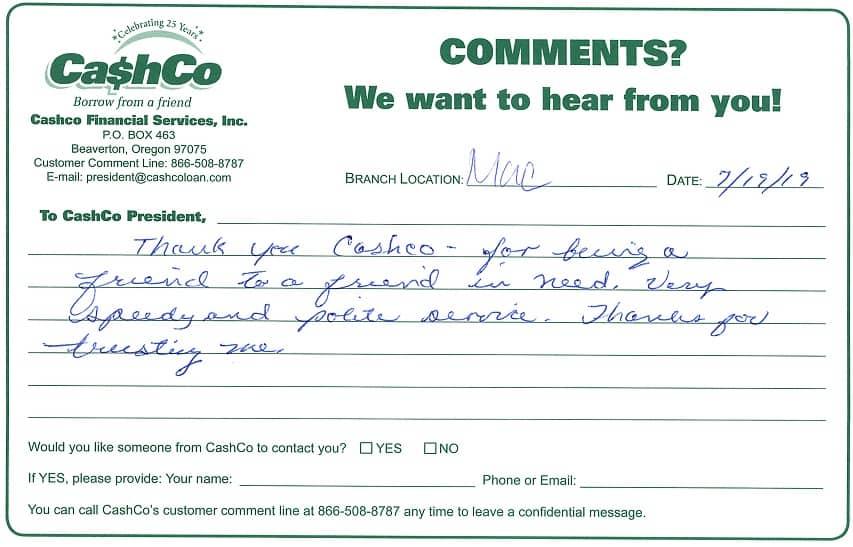 Celebrating 25 Years
Ca$hCo
Borrow from a friend
Cashco Financial Services, Inc.
P.O. BOX 463
Beaverton, Oregon 97075
Customer Comment Line: 866-508-8787
E-mail: president@cashcoloan.com
COMMENTS?
We want to hear from you!
BRANCH LOCATION: Mac DATE: 7/19/19
To CashCo President,
Thank you Cashco - for being a
friend to a friend in need. Very
speedy and polite service. Thanks for
trusting me.
Would you like someone from CashCo to contact you? YES NO
If YES, please provide: Your name: Phone or Email:
You can call CashCo's customer comment line at 866-508-8787 any time to leave a confidential message.